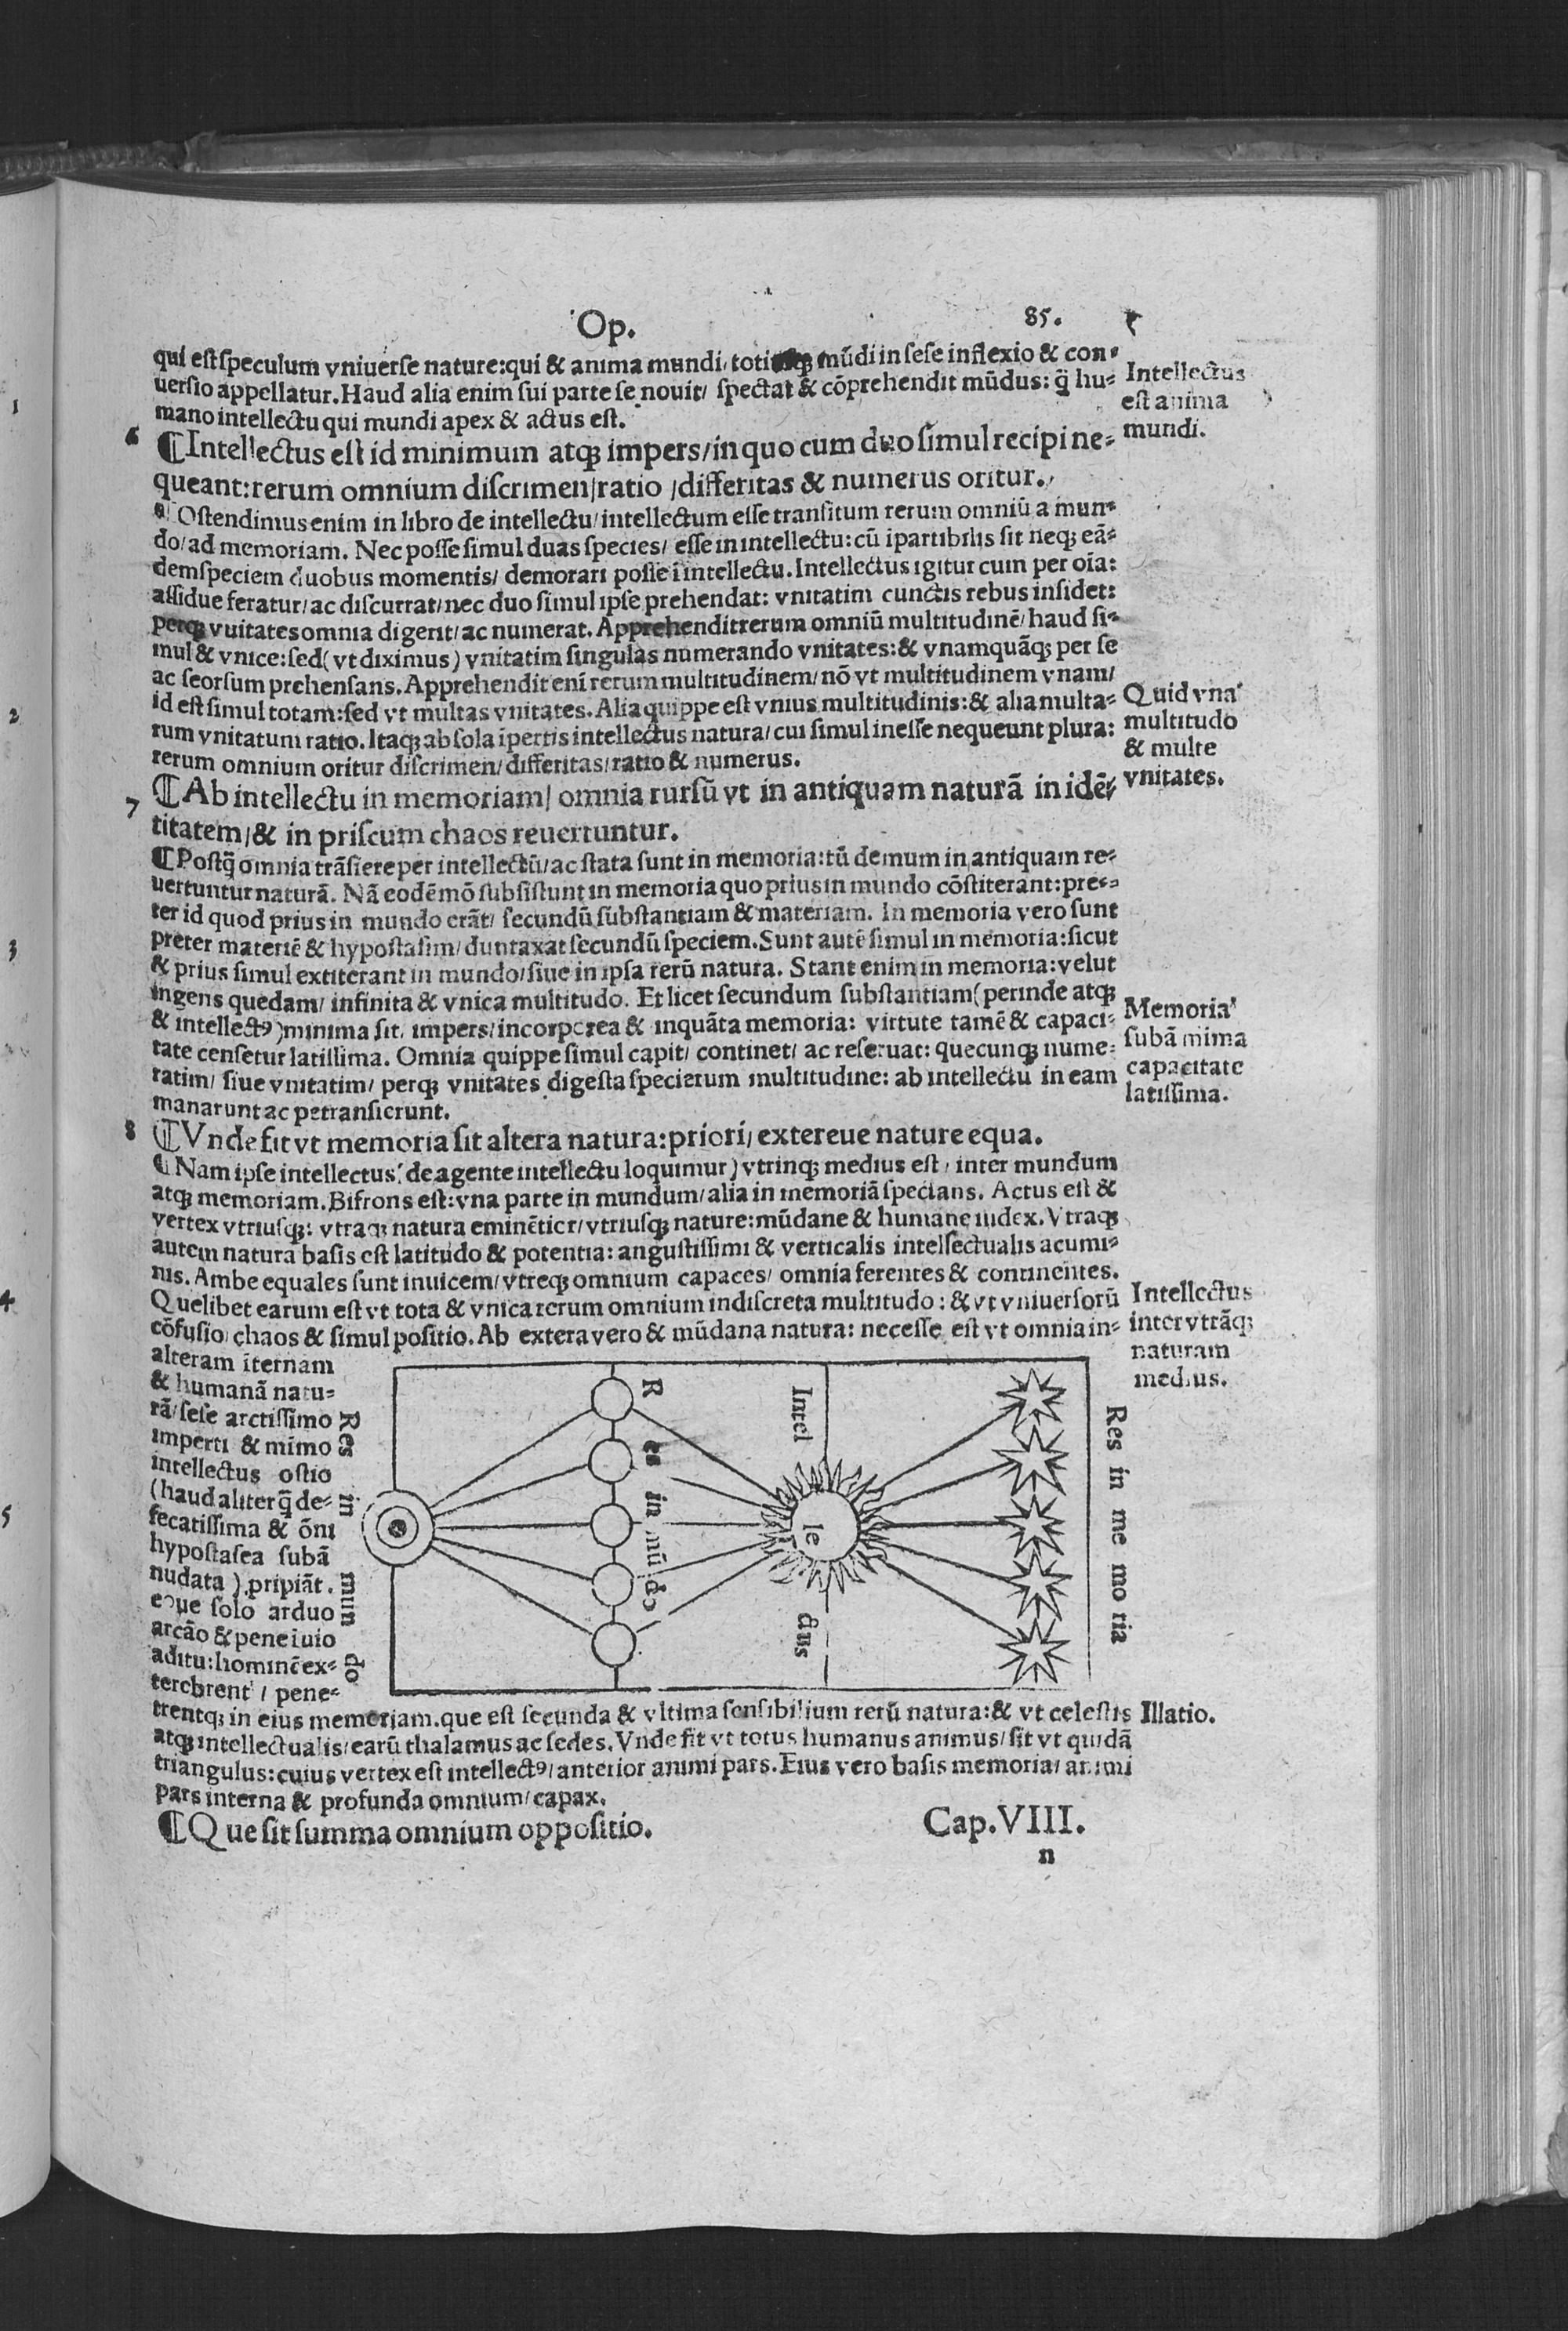 Op.
85.
qui est speculum vniuerse nature:qui & anima mundi/ totiusq; mūdi in sese inflexio & con-
uersio appellatur. Haud alia enim sui parte se nouit/ spectat & cōprehendit mūdus: q̄ hu-
mano intellectu qui mundi apex & actus est.
Intellectus
est anima
mundi.
6
¶Intellectus est id minimum atq; impers/in quo cum duo simul recipi ne-
queant:rerum omnium discrimen/ratio /differitas & numerus oritur.
¶Ostendimus enim in libro de intellectu/intellectum esse transitum rerum omniū a mun-
do/ad memoriam. Nec posse simul duas species/ esse in intellectu:cū ipartibilis sit neq; eā-
dem speciem duobus momentis/ demorari posse ī intellectu. Intellectus igitur cum per oīa:
assidue feratur/ac discurrat/nec duo simul ipse prehendat: vnitatim cunctis rebus insidet:
perq; vuitates omnia digerit/ac numerat. Apprehendit rerum omniū multitudinē/haud si-
mul & vnice:sed( vt diximus) vnitatim singulas numerando vnitates:& vnamquāq; per se
ac seorsum prehensans. Apprehendit enī rerum multitudinem/nō vt multitudinem vnam/
id est simul totam:sed vt multas vnitates. Alia quippe est vnius multitudinis:& alia multa-
rum vnitatum ratio. Itaq; ab sola ipertis intellectus natura/cui simul inesse nequeunt plura:
rerum omnium oritur discrimen/differitas/ratio & numerus.
Quid vna
multitudo
& multe
vnitates.
7
¶Ab intellectu in memoriam/ omnia rursū vt in antiquam naturā in idē/
titatem/& in priscum chaos reuertuntur.
¶Postq̄ omnia trāsiere per intellectū/ac stata sunt in memoria:tū demum in antiquam re-
uertuntur naturā. Nā eodēmō subsistunt in memoria quo prius in mundo cōstiterant:pre-
ter id quod prius in mundo erāt/ secundū substantiam & materiam. In memoria vero sunt
preter materiē & hypostasim/duntaxat secundū speciem. Sunt autē simul in memoria:sicut
& prius simul extiterant in mundo/siue in ipsa rerū natura. Stant enim in memoria:velut
ingens quedam/ infinita & vnica multitudo. Et licet secundum substantiam(perinde atq;
& intellectꝰ)minima sit/ impers/incorporea & inquāta memoria: virtute tamē & capaci-
tate censetur latissima. Omnia quippe simul capit/ continet/ ac reseruat: quecunq; nume-
ratim/ siue vnitatim/ perq; vnitates digesta specierum multitudine: ab intellectu in eam
manarunt ac petransierunt.
Memoria
subā mima
capacitate
latissima.
8
¶Vnde fit vt memoria sit altera natura:priori/extereue nature equa.
¶Nam ipse intellectus( de agente intellectu loquimur) vtrinq; medius est/ inter mundum
atq; memoriam. Bifrons est:vna parte in mundum/alia in memoriā spectans. Actus est &
vertex vtriusq;: vtraq; natura eminētior/vtriusq; nature:mūdane & humane iudex. Vtraq;
autem natura basis est latitudo & potentia: angustissimi & verticalis intellectualis acumi-
nis. Ambe equales sunt inuicem/vtreq; omnium capaces/ omnia ferentes & continentes.
Quelibet earum est vt tota & vnica rerum omnium indiscreta multitudo: & vt vniuersorū
cōfusio/chaos & simul positio. Ab extera vero & mūdana natura: necesse est vt omnia in-
Intellectus
inter vtrāq;
naturam
medius.
alteram īternam
& humanā natu-
rā/sese arctissimo
imperti & mīmo
intellectus ostio
(haud aliter q̄ de-
fecatissima & ōni
hypostasea subā
nudata ).pripiāt.
eoue solo arduo
arcāo & pene īuio
aditu:hominē ex-
terebrent / pene-
Res in mun do
Res in mū do
Intel le ctus
Res in me mo ria
trentq; in eius memoriam.que est secunda & vltima sensibilium rerū natura:& vt celestis
atq; intellectualis/earū thalamus ac sedes. Vnde fit vt totus humanus animus/sit vt quidā
triangulus:cuius vertex est intellectꝰ/anterior animi pars. Eius vero basis memoria/animi
pars interna & profunda omnium/capax.
Illatio.
¶Que sit summa omnium oppositio. Cap.VIII.
n
1
2
3
4
5